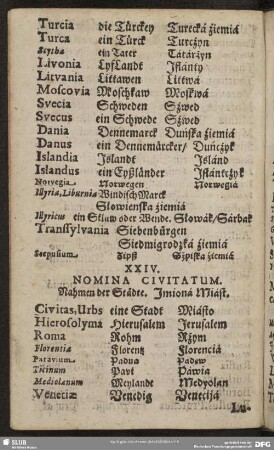 Turcia die Türckey Turecká źiemiá
Turca ein Türck Turcżyn
Scytha ein Tater Tátárżyn
Livonia Lyfflandt Jflánty
Litvania Littawen Littwá
Moscovia Moschkaw Moskwá
Svecia Schweden Sżwed
Svecus ein Schwede Sżwed
Dania Dennemarck Duńska źiemiá
Danus ein Dennemärcker/ Duńcżyk
Islandia Jslandt Jsland
Islandus ein Eyßländer Jslántcżyk
Norvegia Norwegen Norwegia
Illyria, Liburnia Windisch Marck
Słowienska źiemiá
Illyricus ein Sklaw oder Wende. Słowák/Sárbak
Transsylvania Siebenbürgen
Siedmigrodzka źiemiá
Scepusium Zipß Sżpiska źiemiá
XXIV.
NOMINA CIVITATUM.
Nahmen der Städte. Jmioná Miast.
Civitas, Urbs eine Stadt Miásto
Hierosolyma Hierusalem Jerusalem
Roma Rohm Rżym
Florentia Florentz Florenciá
Patavium Padua Padew
Ticinum Pavt Páwia
Mediolanum Meylandt Medyolan
Venetiæ Venedig Venecijá
Lu-
SLUB
DFG